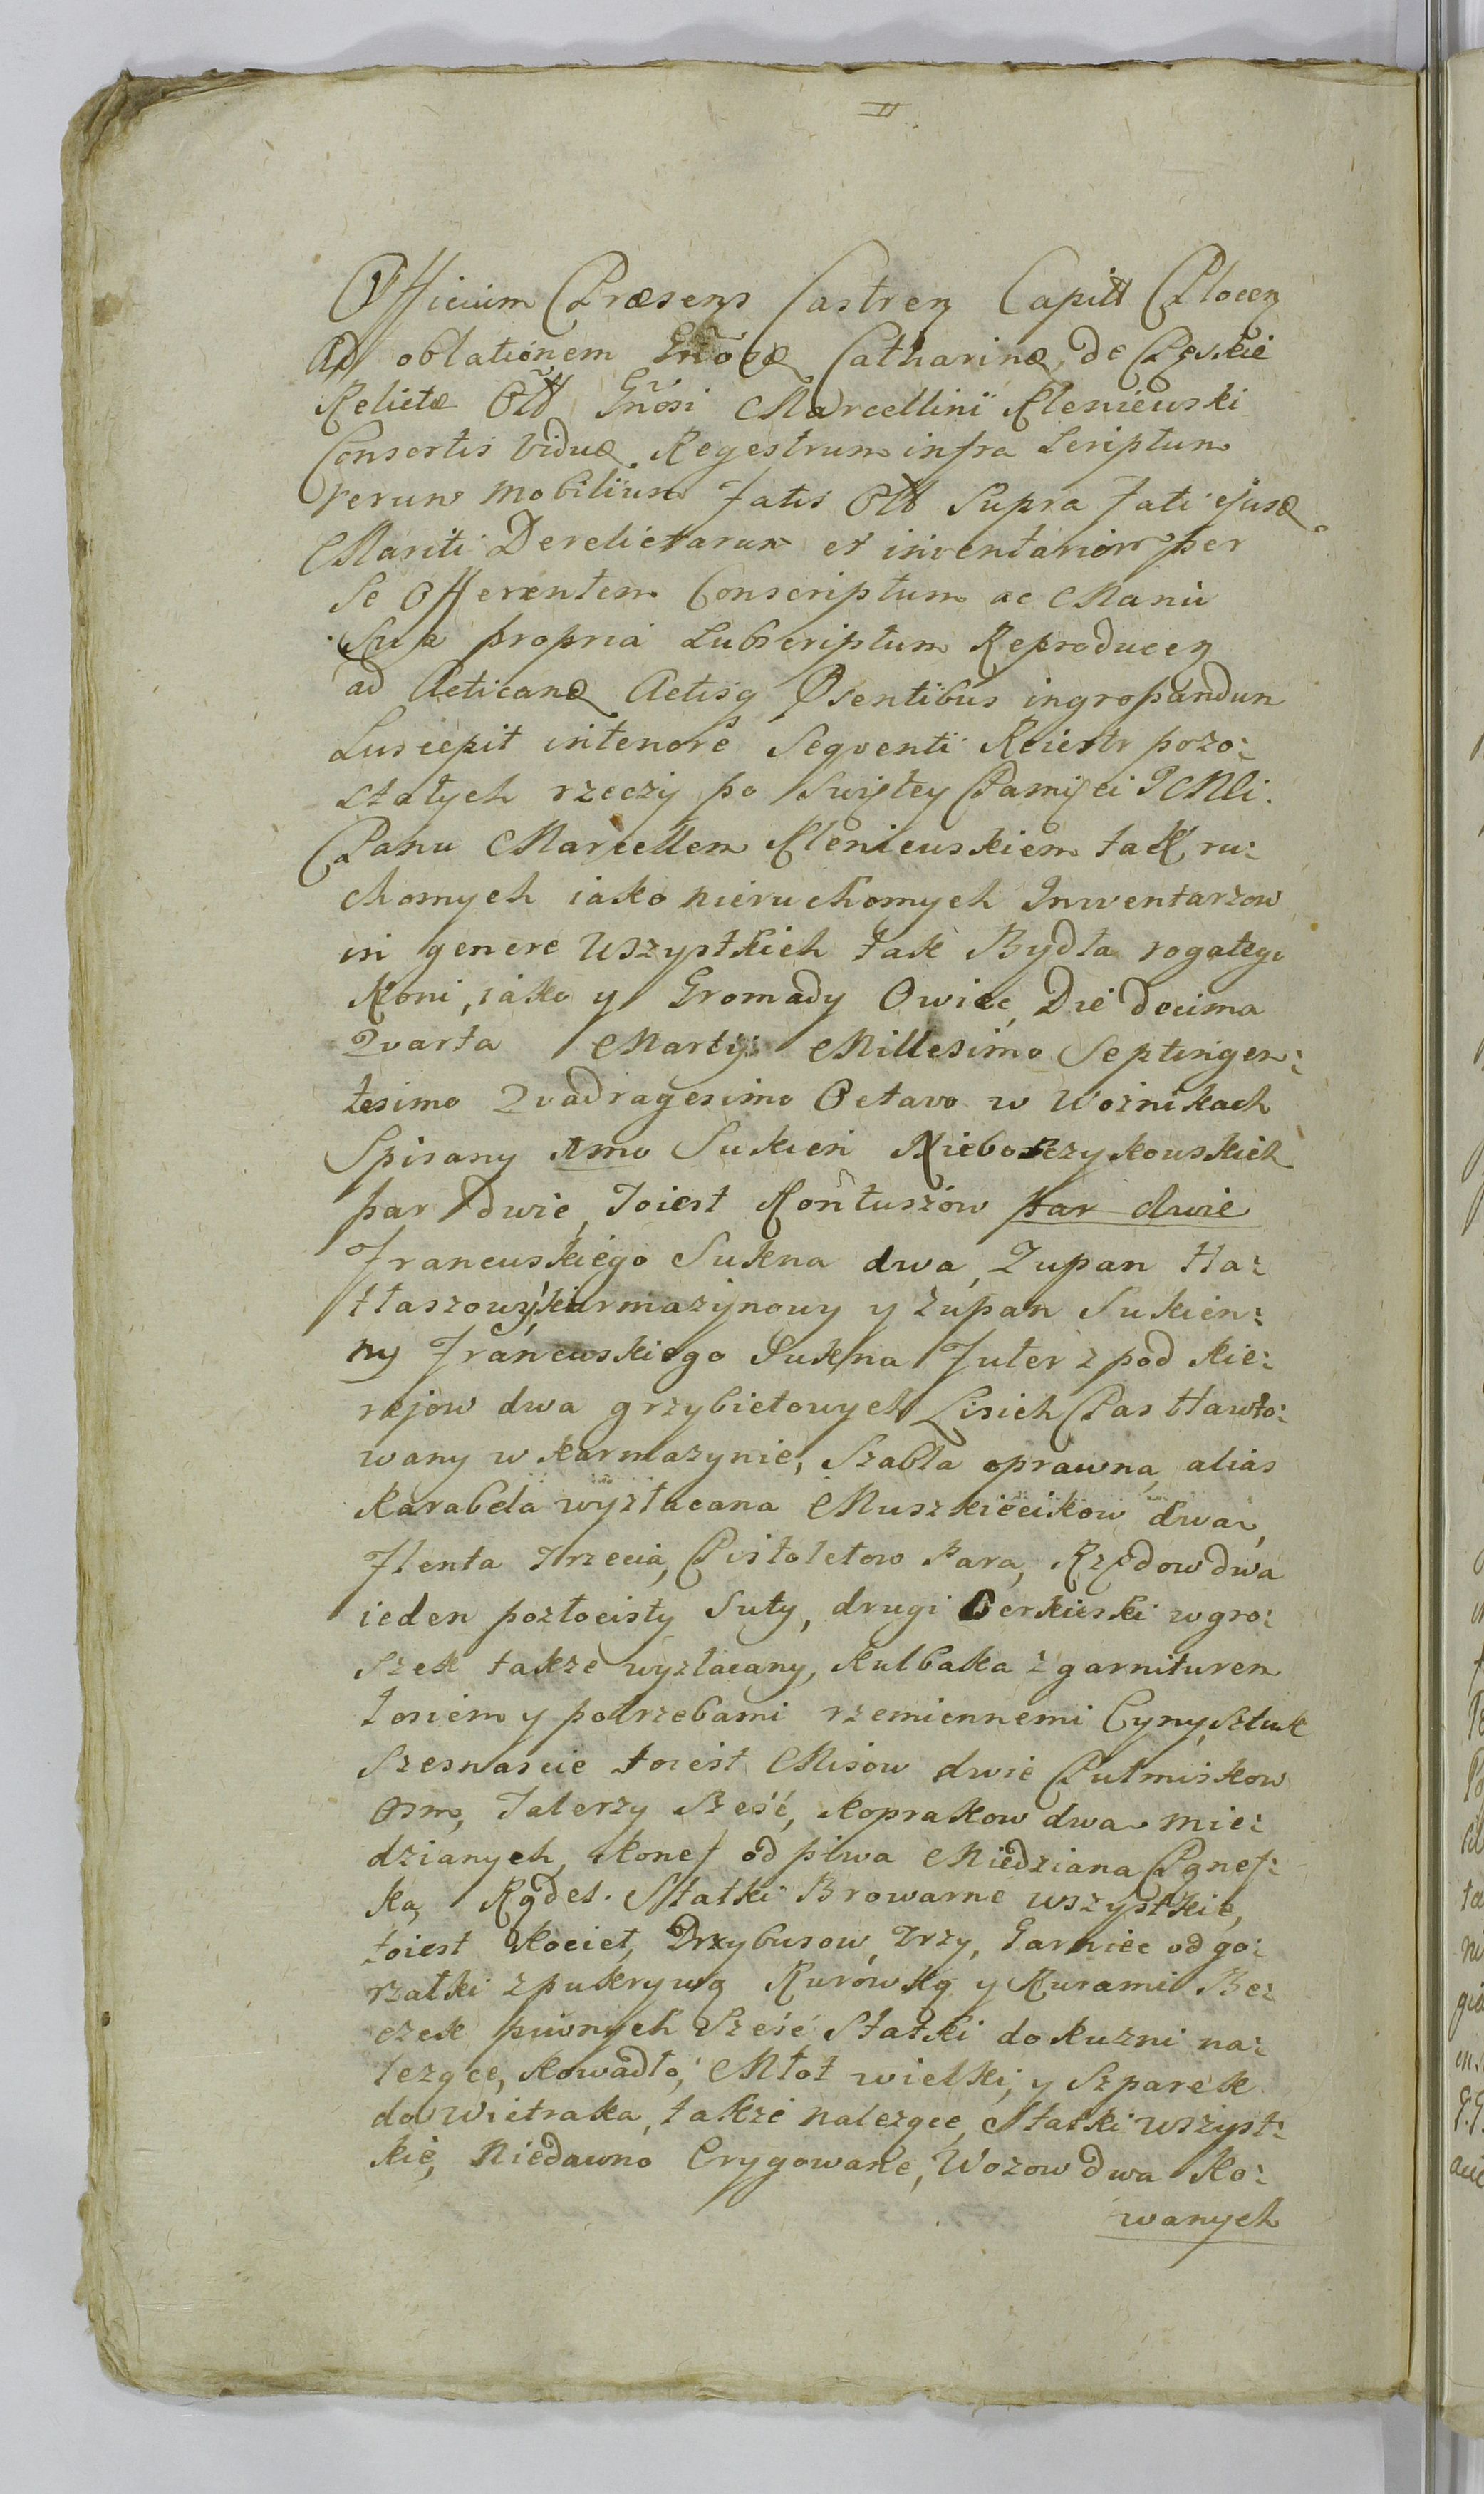 II
Officium Præsens Castren Capitt Plocen
Ad oblationem Gnosæ Catharinæ de
Relictæ Olt Gnosi Marcellini Kleniewski
Consortis Viduæ Regestrum infra Scriptum
rerum mobilium fatis Olt Supra fati ejusæ
Mariti Derelictarum et inventarior per
Se Offerentem Conscriptum ac Manu
Sua propria Subscriptum Reproducen
ad Acticanæ Actisq Psentibus ingrossandum
Suscepit intenore Seqventi Reiestr pozo:
stałych rzeczy po Swiętey Pamięci JCMCi.
Panu Marcellem Kleniewskiem tak ru:
chomych iako nieruchomych Inwentarzow
in genere Wszystkich tak Bydła rogatego
Koni, iako y Gromady Owiec, Die decima
Qvarta Martij Millesimo Septingen:
tesimo Qvadragesimo Octavo w Woznikach
Spisany Imo Sukien Nieboszzykowskich
par dwie, Toiest Kontuszow par dwie
Francuskiego Sukna dwa, Zupan Ha:
tłaszowy karmazynowy y zupan Sukien:
ny Francuskiego Sukna Futer z pod kie:
rejow dwa grzybietowych Lisich Pas Hawto:
wany w karmazynie, Szabla oprawna alias
Karabela wyzłacana Muszkiecikow dwa,
Flenta Trzecia, Pistoletow Para, Rzędow dwa
ieden pozłocisty Suty, drugi Cerkieski wgro:
szek takze wyzłacany, Kulbaka z garniturem
Łosiem y potrzebami rzemiennemi Cyny, Sztuk
Szesnascie toiest Misow dwie Pułmiskow
Osm, Talerzy Sześć, Koprakow dwa mie:
dzianych, Konef od piwa Miedziana Pgnef:
ka, Rądel. Statki Browarne wszystkie,
toiest Kocieł, Drzybusow Trzy, Garniec od go:
rzałki z pukrywą Rurówką y Rurami Be:
czek piwnych Sześć Statki do kuzni na:
lezące, Kowadło, Młot wielki, y Szparek
do Wietraka, takze nalezące Statki wszyst:
kie, Niedawno Erygowane, Wozow dwa Ko:
wanych